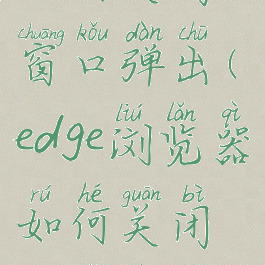 chuāng kǒu dàn chū
窗口弹出(
liú lǎn qì
edge浏览器
rú hé guān bì
如何关闭